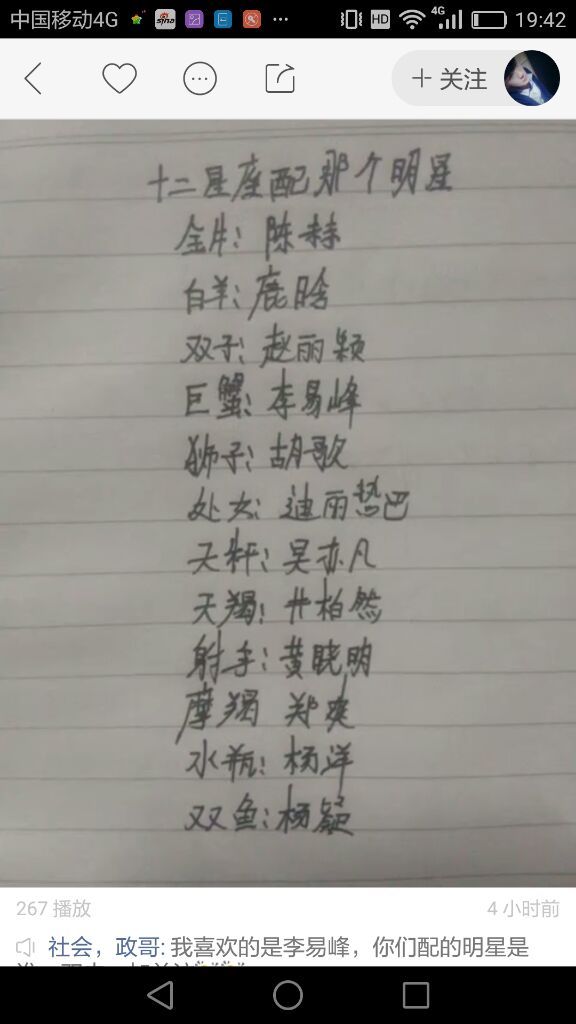 中国移动4G
sina
HD
4G
19:42
+ 关注
十二星座配那个明星
金牛：陈赫
白羊：鹿晗
双子：赵丽颖
巨蟹：李易峰
狮子：胡歌
处女：迪丽热巴
天秤：吴亦凡
天羯：井柏然
射手：黄晓明
摩羯 郑爽
水瓶：杨洋
双鱼：杨
267 播放
4 小时前
社会，政哥：我喜欢的是李易峰，你们配的明星是